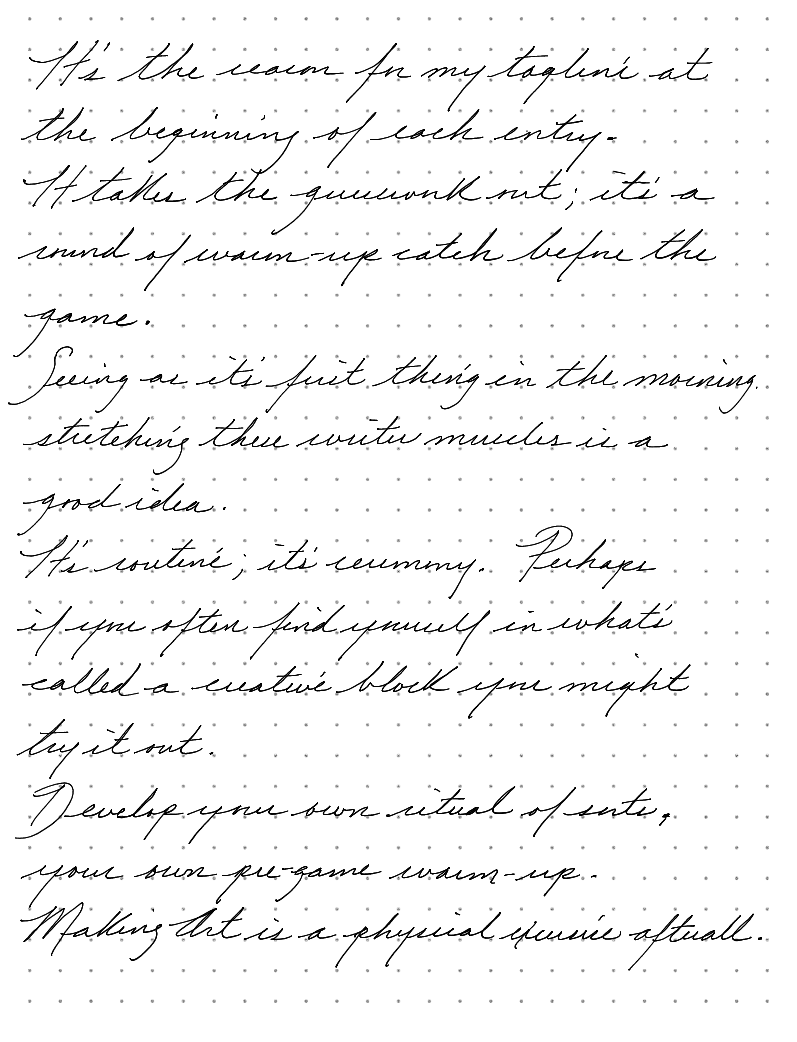 It's the reason for my tagline at
the beginning of each entry.
It takes the guesswork out; it's a
round of warm-up catch before the
game.
Seeing as it's first thing in the morning,
stretching these writer muscles is a
good idea.
It's routine; it's ceremony. Perhaps
if you often find yourself in what's
called a creative block you might
try it out.
Develop your own ritual of sorts,
your own pre-game warm-up.
Making Art is a physical exercise afterall.